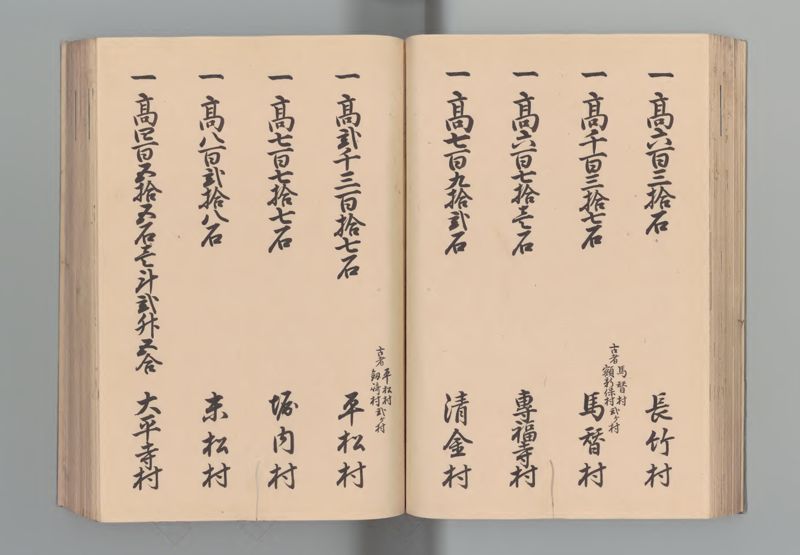 一 高六百三拾石 長竹村
一 高千百三拾七石 馬替村
古者 馬替村 額新保村 弐ヶ村
一 高六百七拾壱石 専福寺村
一 高七百九拾弐石 清金村
一 高弐千三百拾七石 平松村
古者 平松村 剱崎村 弐ヶ村
一 高七百七拾七石 堀内村
一 高八百弐拾八石 末松村
一 高四百五拾五石壱斗弐升五合 大平寺村